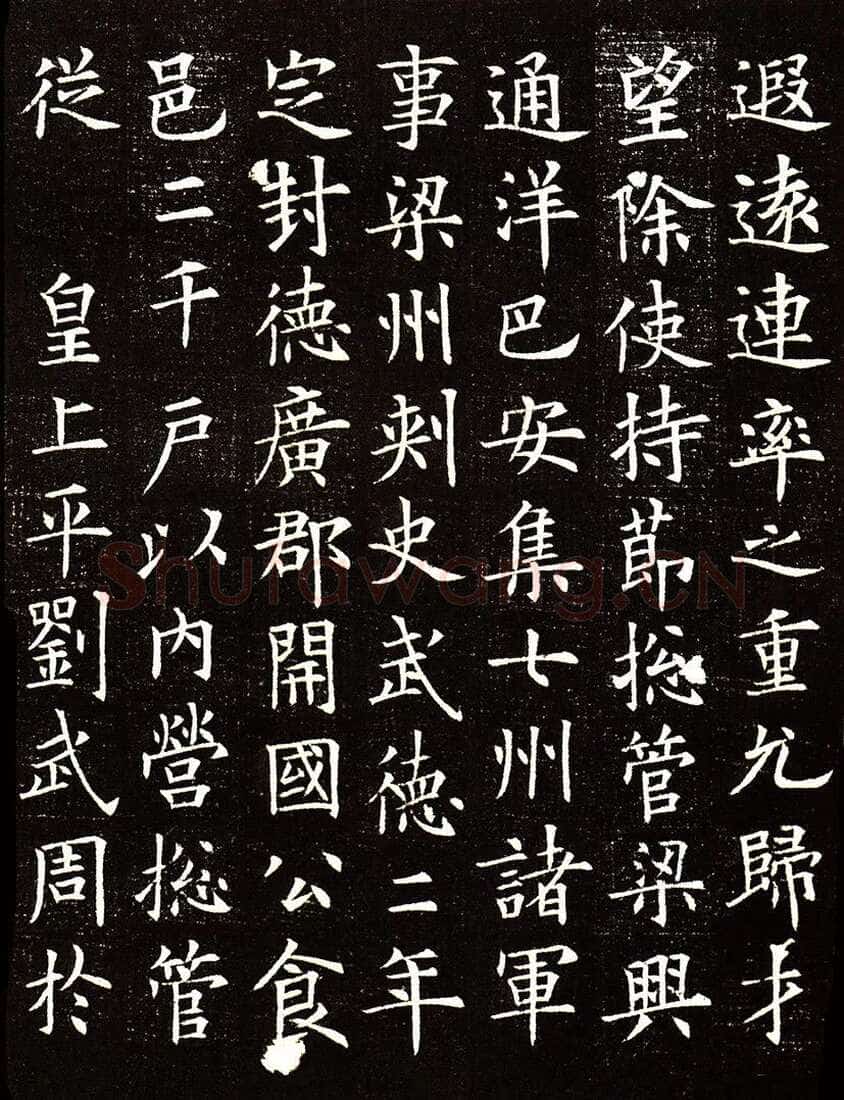 遐遠連率之重尤歸才
望除使持節揔管梁興
通洋巴安集七州諸軍
事梁州刺史武德二年
定封德廣郡開國公食
邑二千戶以內營揔管
從 皇上平劉武周於
Shufawang.CN